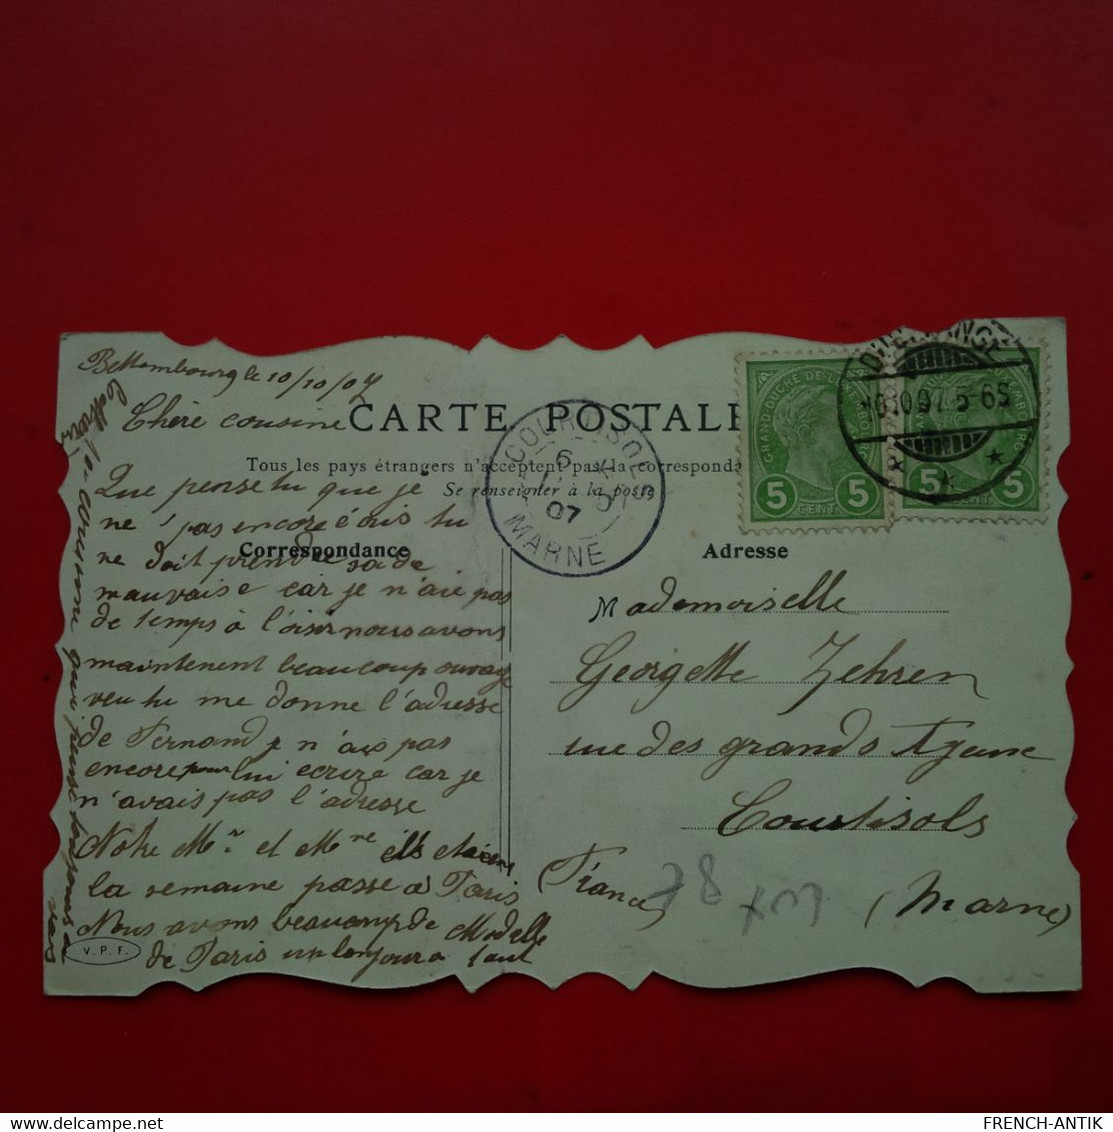 Bettembourg le 10/10/07
Chère cousine
CARTE POSTALE
Tous les pays étrangers n'acceptent pas la correspondance
Se renseigner à la poste
Correspondance
Adresse
Que pense tu que je
ne pas encore écris tu
ne doit prendre sa de
mauvaise car je n'aie pas
de temps à l'oisir nous avons
maintenent beaucoup ouvrage
veu tu me donne l'adresse
de Fernand je n'ais pas
encore pour lui ecrire car je
n'avais pas l'adresse
Notre Mr et Mme ils etaient
la semaine passe a Paris
Nous avons beaucoup de Modelle
de Paris un bonjour a tout
V.P.F.
COURTISOLS
6
07
MARNE
GRAND-DUCHÉ DE LUXEMBOURG
5 CENT. 5
5 CENT. 5
10.10.07.5-6S
Mademoiselle
Georgette Zehren
rue des grands
Courtisols
(France)
(Marne)
78